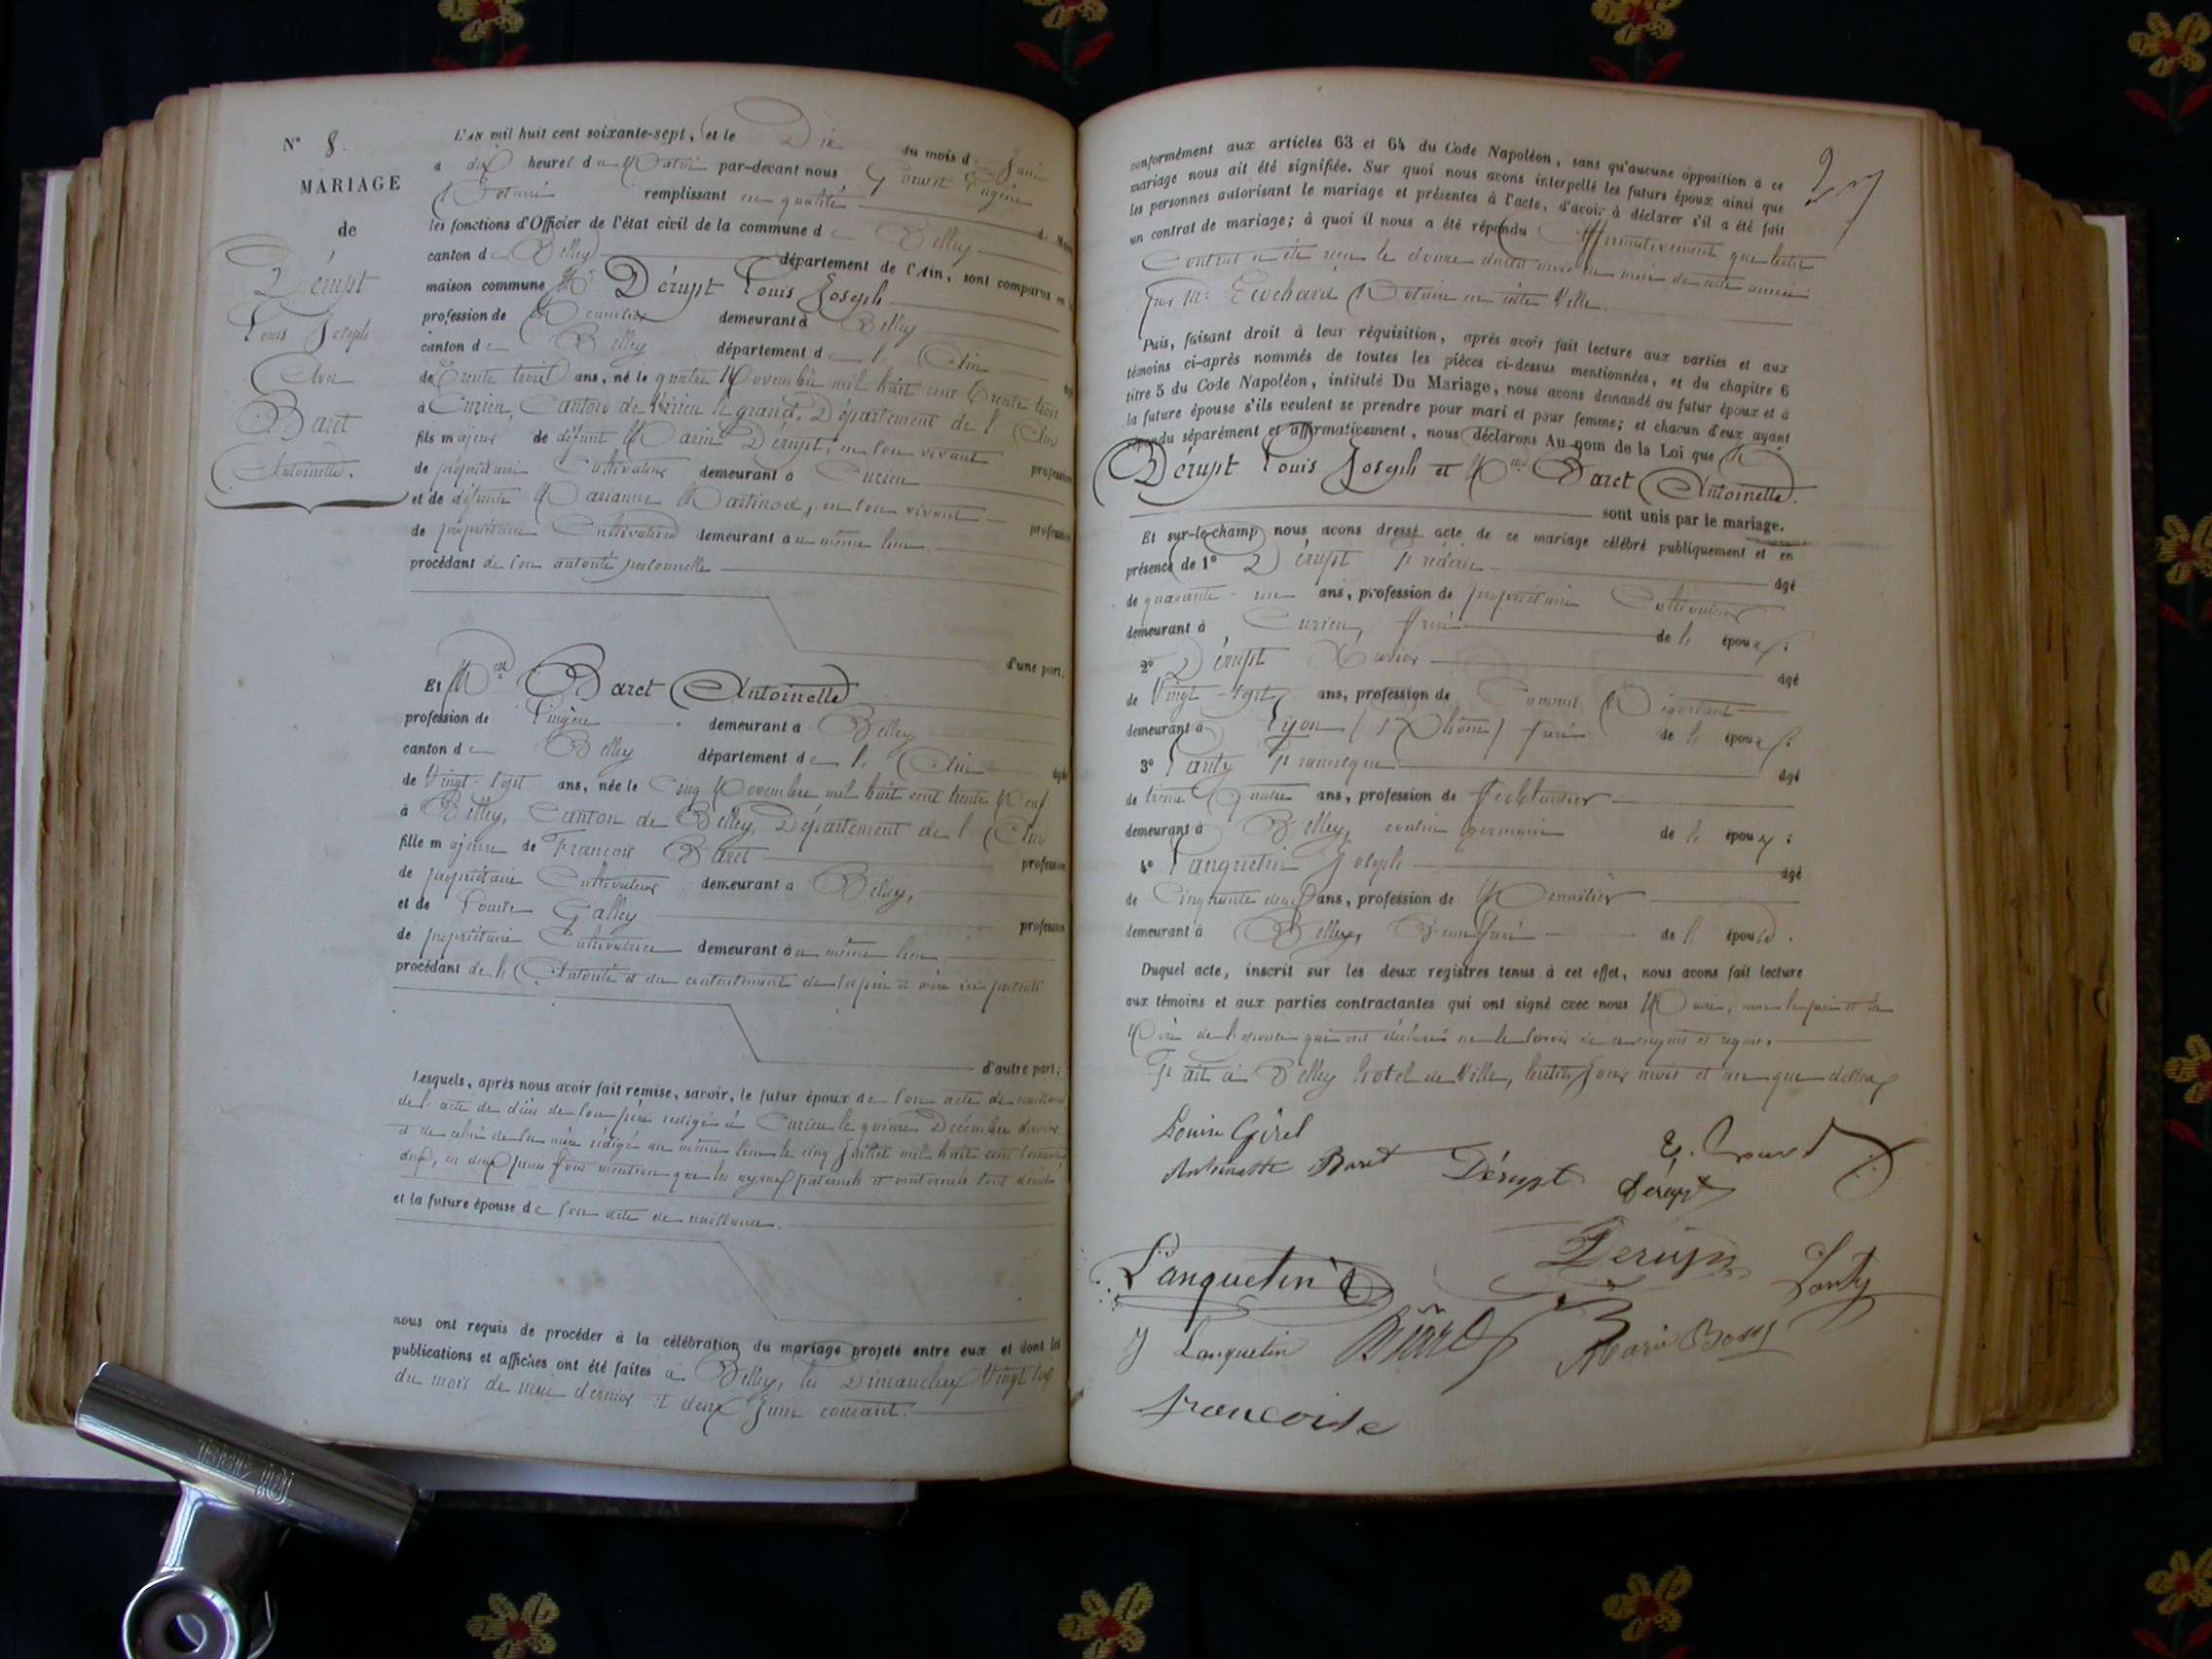 N° 8.
MARIAGE
de
Dérupt
Louis Joseph
Et
Baret
Antoinette.
L'AN mil huit cent soixante-sept, et le Dix du mois de Juin
à dix heures du Matin par-devant nous Gouvert Eugène
Notaire remplissant en qualité de Maire
les fonctions d'Officier de l'état civil de la commune de Belley
canton de Belley département de l'Ain, sont comparus en la
maison commune Mr Dérupt Louis Joseph
profession de Menuisier demeurant à Belley
canton de Belley département de l'Ain âgé
de Trente trois ans, né le quatre Novembre mil huit cent Trente trois
à Cuzieu, Canton de Virieu le grand, Département de l'Ain
fils majeur de défunt Marin Dérupt, en son vivant profession
de propriétaire Cultivateur demeurant à Cuzieu
et de défunte Marianne Martinod, en son vivant profession
de propriétaire Cultivatrice demeurant au même lieu
procédant de son autorité personnelle
d'une part.
Et Mlle Baret Antoinette
profession de Lingère demeurant à Belley
canton de Belley département de l'Ain âgée
de Vingt-sept ans, née le Cinq Novembre mil huit cent trente Neuf
à Belley, Canton de Belley, Département de l'Ain
fille majeure de François Baret profession
de propriétaire Cultivateur demeurant à Belley,
et de Louise Galley profession
de propriétaire Cultivatrice demeurant au même lieu
procédant de l'Autorité et du consentement de ses père et mère ici présents
d'autre part;
Lesquels, après nous avoir fait remise, savoir, le futur époux de son acte de naissance
de l'acte de décès de son père rédigé à Cuzieu le quinze Décembre dernier
et de celui de sa mère rédigé au même lieu le cinq Juillet mil huit cent soixante
deux, ces deux pièces font mention que les ayeux paternels et maternels sont décédés
et la future épouse de son acte de naissance.
nous ont requis de procéder à la célébration du mariage projeté entre eux et dont les
publications et affiches ont été faites à Belley, les Dimanches Vingt six
du mois de mai dernier et deux Juin courant.
conformément aux articles 63 et 64 du Code Napoléon, sans qu'aucune opposition à ce
mariage nous ait été signifiée. Sur quoi nous avons interpellé les futurs époux ainsi que
les personnes autorisant le mariage et présentes à l'acte, d'avoir à déclarer s'il a été fait
un contrat de mariage; à quoi il nous a été répondu Affirmativement que ledit
Contrat a été reçu le douze du mois de mai de cette année
par Me Notaire en cette Ville.
Puis, faisant droit à leur réquisition, après avoir fait lecture aux parties et aux
témoins ci-après nommés de toutes les pièces ci-dessus mentionnées, et du chapitre 6
titre 5 du Code Napoléon, intitulé Du Mariage, nous avons demandé au futur époux et à
la future épouse s'ils veulent se prendre pour mari et pour femme; et chacun d'eux ayant
répondu séparément et affirmativement, nous déclarons Au nom de la Loi que Mr
Dérupt Louis Joseph et Mlle Baret Antoinette.
sont unis par le mariage.
Et sur-le-champ nous avons dressé acte de ce mariage célébré publiquement et en
présence de 1° Dérupt Fréderic âgé
de quarante-un ans, profession de propriétaire Cultivateur
demeurant à Cuzieu, frère de l'époux;
2° Dérupt Xavier âgé
de Vingt-sept ans, profession de Commis Négociant
demeurant à Lyon (Rhône) frère de l'époux;
3° Lanty Francisque âgé
de trente Quatre ans, profession de ferblantier
demeurant à Belley, cousin germain de l'époux;
4° Lanquetin Joseph âgé
de Cinquante deux ans, profession de Menuisier
demeurant à Belley, Beau frère de l'épouse.
Duquel acte, inscrit sur les deux registres tenus à cet effet, nous avons fait lecture
aux témoins et aux parties contractantes qui ont signé avec nous Maire, non le père et la
Mère de l'épouse qui ont déclaré ne le savoir de ce enquis et requis.
Fait à Belley hotel de Ville, lesdits jour mois et an que dessus
Louise Girel
Antoinette Baret Dérupt Dérupt
Lanquetin Derupt Lanty
J Lanquetin Marie Bossy
francoise